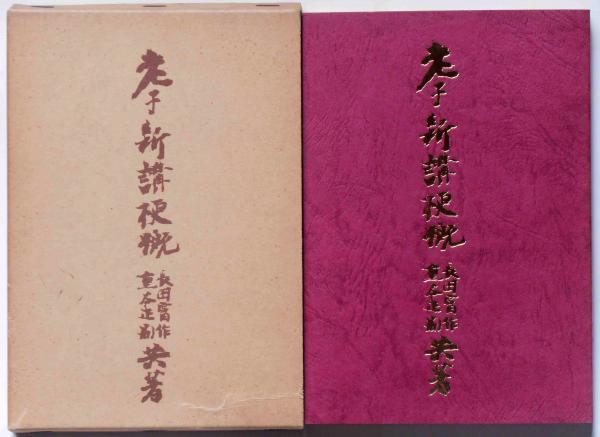 老子新講梗概
長田富作
重本
共著
老子新講梗概
長田富作
重本
共著